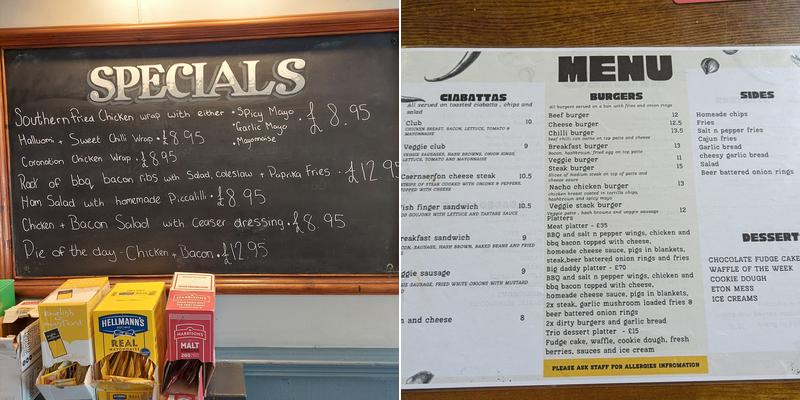 SPECIALS
Southern Fried Chicken wrap with either • Spicy Mayo £8.95
• Garlic Mayo
• Mayonnaise
Halluomi + Sweet Chilli Wrap • £8.95
Coronation Chicken Wrap • £8.95
Rack of bbq bacon ribs with Salad, coleslaw + Paprika fries • £12.9
Ham Salad with homemade Piccalilli • £8.95
Chicken + Bacon Salad with Ceaser dressing • £8.95
Pie of the day - Chicken + Bacon • £12.95
English mustard
HELLMANN'S
REAL
MAYONNAISE
REAL
HARRISONS
HARRISONS
MALT
200
MENU
CIABATTAS
All served on toasted ciabatta, chips and
salad
Club 10
CHICKEN BREAST, BACON, LETTUCE, TOMATO &
MAYONNAISE
Veggie club 9
VEGGIE SAUSAGES, HASH BROWNS, ONION RINGS,
LETTUCE, TOMATO AND MAYONNAISE
Caernarfon cheese steak 10.5
STRIPS OF STEAK COOKED WITH ONIONS & PEPPERS,
TOPPED WITH CHEESE
ish finger sandwich 10.5
GOUJONS WITH LETTUCE AND TARTARE SAUCE
reakfast sandwich 9
CON, SAUSAGE, HASH BROWN, BAKED BEANS AND FRIED
ggie sausage 9
SAUSAGE, FRIED WHITE ONIONS WITH MUSTARD
n and cheese 8
BURGERS
All burgers served on a bun with fries and onion rings
Beef burger 12
Cheese burger 12.5
Chilli burger 13.5
beef chilli con carne on top patty and cheese
Breakfast burger 13
Bacon, hashbrown, fried egg on top patty
Veggie burger 11
Steak burger 15
Slices of medium steak on top of patty and
cheese sauce
Nacho chicken burger 13
chicken breast coated in tortilla chips,
hashbrown and spicy mayo
Veggie stack burger 12
Veggie patty, hash browns and veggie sausage
Platters
Meat platter - £35
BBQ and salt n pepper wings, chicken and
bbq bacon topped with cheese,
homeade cheese sauce, pigs in blankets,
steak,beer battered onion rings and fries
Big daddy platter - £70
BBQ and salt n pepper wings, chicken and
bbq bacon topped with cheese,
homeade cheese sauce, pigs in blankets,
2x steak, garlic mushroom loaded fries &
beer battered onion rings
2x dirty burgers and garlic bread
Trio dessert platter - £15
Fudge cake, waffle, cookie dough, fresh
berries, sauces and ice cream
PLEASE ASK STAFF FOR ALLERGIES INFROMATION
SIDES
Homeade chips
Fries
Salt n pepper fries
Cajun fries
Garlic bread
cheesy garlic bread
Salad
Beer battered onion rings
DESSERT
CHOCOLATE FUDGE CAKE
WAFFLE OF THE WEEK
COOKIE DOUGH
ETON MESS
ICE CREAMS